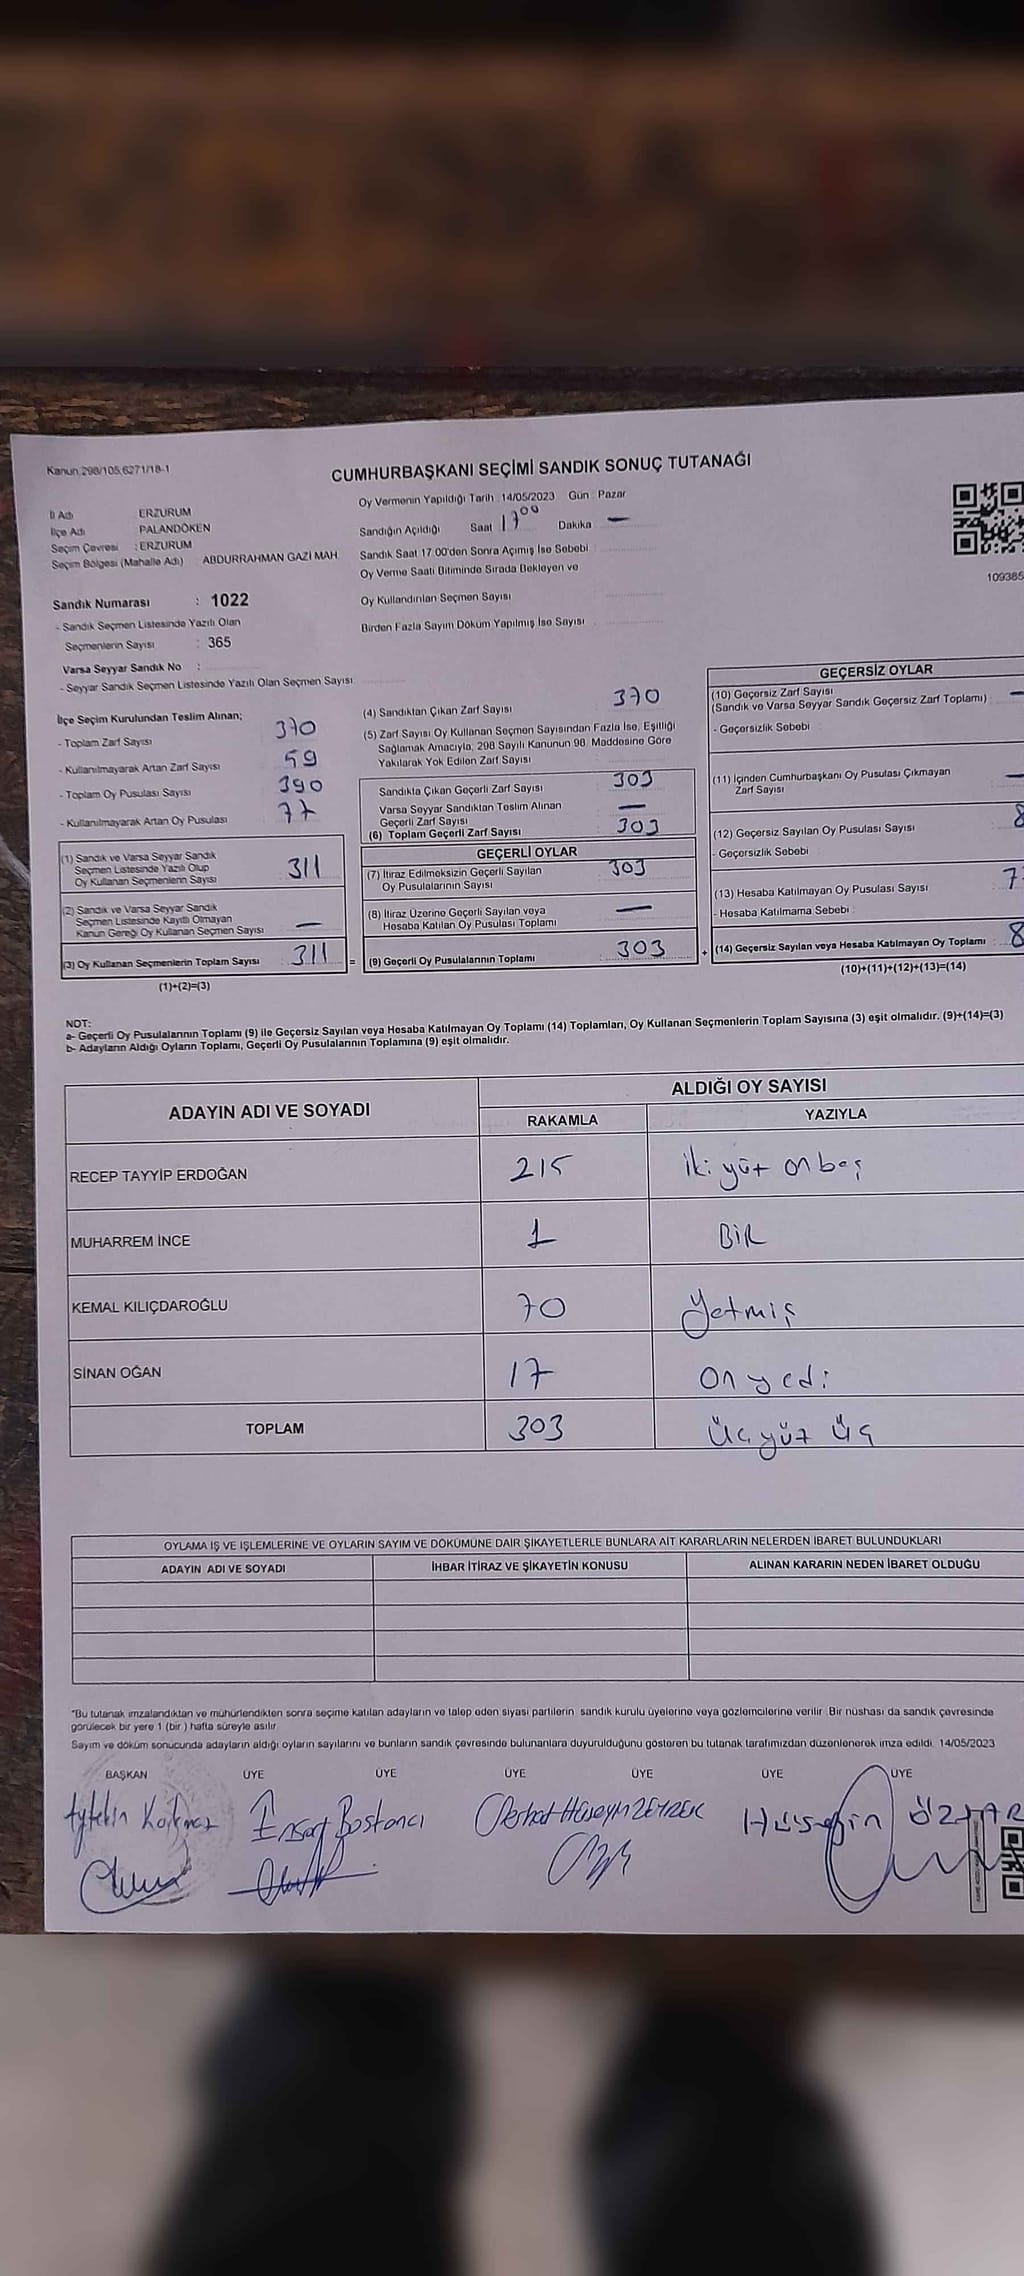 Kanun:298/105,6271/18-1
CUMHURBAŞKANI SEÇİMİ SANDIK SONUÇ TUTANAĞI
Oy Vermenin Yapıldığı Tarih :14/05/2023 Gün : Pazar
İl Adı : ERZURUM
İlçe Adı : PALANDÖKEN
Seçim Çevresi : ERZURUM
Seçim Bölgesi (Mahalle Adı) ABDURRAHMAN GAZİ MAH
Sandığın Açıldığı Saat 17 00 Dakika —
Sandık Saat 17.00'den Sonra Açımış İse Sebebi :
Oy Verme Saati Bitiminde Sırada Bekleyen ve
Oy Kullandırılan Seçmen Sayısı
Birden Fazla Sayım Döküm Yapılmış İse Sayısı :
109385
Sandık Numarası : 1022
- Sandık Seçmen Listesinde Yazılı Olan
Seçmenlerin Sayısı : 365
Varsa Seyyar Sandık No :
- Seyyar Sandık Seçmen Listesinde Yazılı Olan Seçmen Sayısı
İlçe Seçim Kurulundan Teslim Alınan;
- Toplam Zarf Sayısı 370
- Kullanılmayarak Artan Zarf Sayısı 59
- Toplam Oy Pusulası Sayısı 390
- Kullanılmayarak Artan Oy Pusulası 77
(1) Sandık ve Varsa Seyyar Sandık
Seçmen Listesinde Yazılı Olup
Oy Kullanan Seçmenlerin Sayısı 311
(2) Sandık ve Varsa Seyyar Sandık
Seçmen Listesinde Kayıtlı Olmayan
Kanun Gereği Oy Kullanan Seçmen Sayısı —
(3) Oy Kullanan Seçmenlerin Toplam Sayısı : 311 =
(1)+(2)=(3)
(4) Sandıktan Çıkan Zarf Sayısı 370
(5) Zarf Sayısı Oy Kullanan Seçmen Sayısından Fazla İse, Eşitliği
Sağlamak Amacıyla, 298 Sayılı Kanunun 98. Maddesine Göre
Yakılarak Yok Edilen Zarf Sayısı
Sandıkta Çıkan Geçerli Zarf Sayısı 303
Varsa Seyyar Sandıktan Teslim Alınan
Geçerli Zarf Sayısı —
(6) Toplam Geçerli Zarf Sayısı 303
GEÇERLİ OYLAR
(7) İtiraz Edilmeksizin Geçerli Sayılan
Oy Pusulalarının Sayısı 303
(8) İtiraz Üzerine Geçerli Sayılan veya
Hesaba Katılan Oy Pusulası Toplamı —
(9) Geçerli Oy Pusulalarının Toplamı 303 +
GEÇERSİZ OYLAR
(10) Geçersiz Zarf Sayısı
(Sandık ve Varsa Seyyar Sandık Geçersiz Zarf Toplamı) : —
- Geçersizlik Sebebi :
(11) İçinden Cumhurbaşkanı Oy Pusulası Çıkmayan
Zarf Sayısı —
(12) Geçersiz Sayılan Oy Pusulası Sayısı 8
- Geçersizlik Sebebi :
(13) Hesaba Katılmayan Oy Pusulası Sayısı
- Hesaba Katılmama Sebebi :
(14) Geçersiz Sayılan veya Hesaba Katılmayan Oy Toplamı : 8
(10)+(11)+(12)+(13)=(14)
NOT:
a- Geçerli Oy Pusulalarının Toplamı (9) ile Geçersiz Sayılan veya Hesaba Katılmayan Oy Toplamı (14) Toplamları, Oy Kullanan Seçmenlerin Toplam Sayısına (3) eşit olmalıdır. (9)+(14)=(3)
b- Adayların Aldığı Oyların Toplamı, Geçerli Oy Pusulalarının Toplamına (9) eşit olmalıdır.
ADAYIN ADI VE SOYADI
ALDIĞI OY SAYISI
RAKAMLA YAZIYLA
RECEP TAYYİP ERDOĞAN 215 iki yüz on beş
MUHARREM İNCE 1 BİR
KEMAL KILIÇDAROĞLU 70 Yetmiş
SİNAN OĞAN 17 On yedi
TOPLAM 303 Üç yüz üç
OYLAMA İŞ VE İŞLEMLERİNE VE OYLARIN SAYIM VE DÖKÜMÜNE DAİR ŞİKAYETLERLE BUNLARA AİT KARARLARIN NELERDEN İBARET BULUNDUKLARI
ADAYIN ADI VE SOYADI İHBAR İTİRAZ VE ŞİKAYETİN KONUSU ALINAN KARARIN NEDEN İBARET OLDUĞU
"Bu tutanak imzalandıktan ve mühürlendikten sonra seçime katılan adayların ve talep eden siyasi partilerin sandık kurulu üyelerine veya gözlemcilerine verilir. Bir nüshası da sandık çevresinde
görülecek bir yere 1 (bir ) hafta süreyle asılır.
Sayım ve döküm sonucunda adayların aldığı oyların sayılarını ve bunların sandık çevresinde bulunanlara duyurulduğunu gösteren bu tutanak tarafımızdan düzenlenerek imza edildi. 14/05/2023
BAŞKAN ÜYE ÜYE ÜYE ÜYE ÜYE ÜYE
Aytekin Ensar Bostancı Hüseyin ÖZ